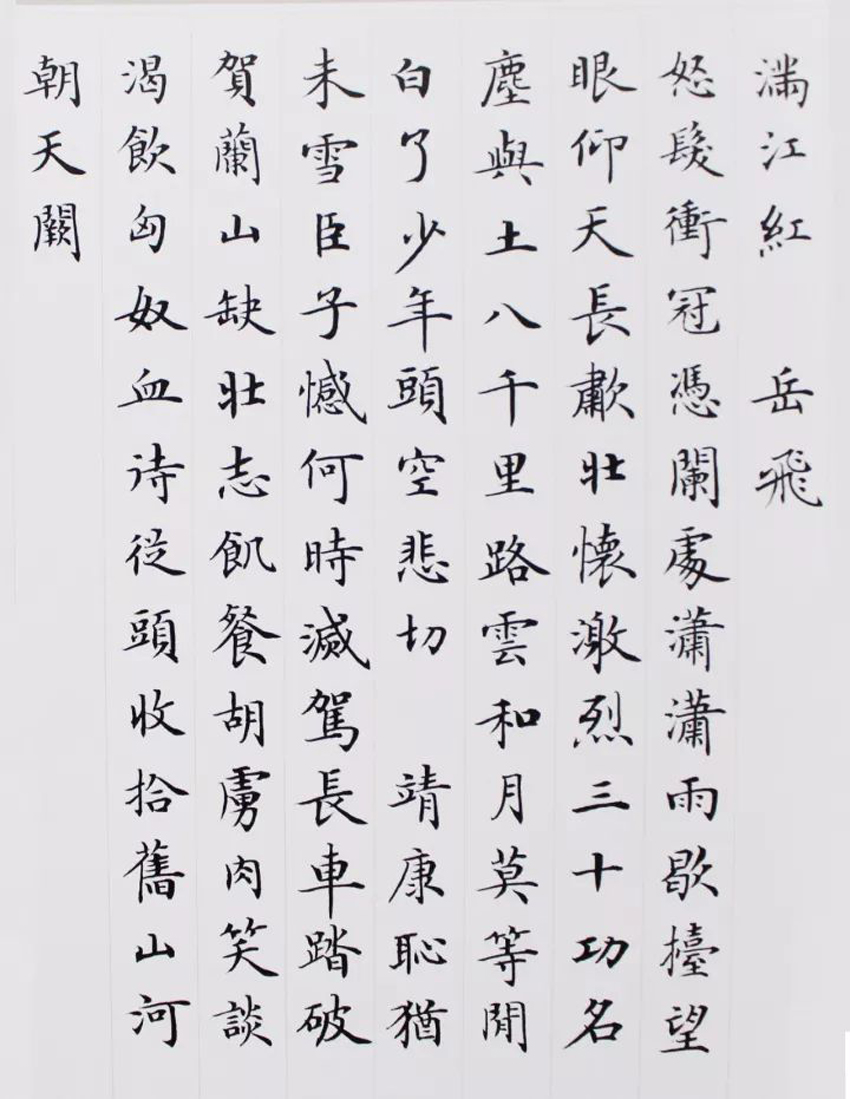 滿江紅 岳飛
怒髮衝冠憑闌處瀟瀟雨歇擡望
眼仰天長歗壯懷激烈三十功名
塵與土八千里路雲和月莫等閒
白了少年頭空悲切 靖康恥猶
未雪臣子憾何時滅駕長車踏破
賀蘭山缺壯志飢餐胡虜肉笑談
渴飲匈奴血待從頭收拾舊山河
朝天闕